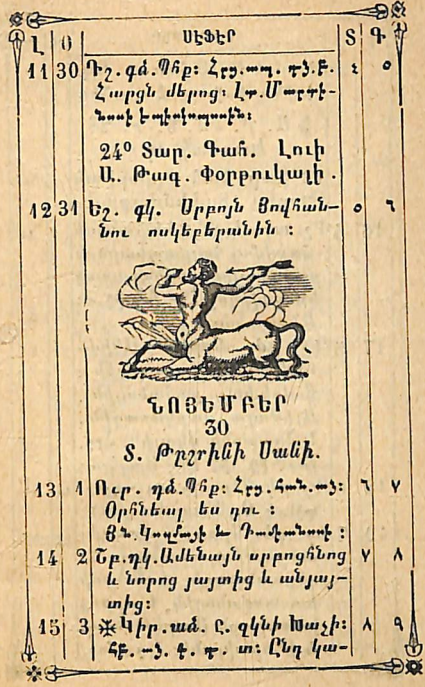 Լ Օ ՍԷՖԷՐ Տ Գ
11 30 Դշ. գձ. Պհք։ Հրց. ապ. գյ. բ. ٤ ٥
Հարցն մերոց։ Լտ. Մարտի-
նոսի եպիսկոպոսին։
24º Տար. Գահ. Լուի
Ա. Թագ. Փօրթուկալի.
12 31 Եշ. գկ. Սրբոյն Յովհան- ٥ ٦
նու ոսկեբերանին ։
ՆՈՅԵՄԲԵՐ
30
Տ. Թըշրինի Սանի.
13 1 Ուր. դձ. Պհք։ Հրց. հան. այ։ ٦ ٧
Օրհնեալ ես դու ։
Յն. Կոզմայի և Դամիանոսի ։
14 2 Շբ. դկ. Ամենայն սրբոցհնոց ٧ ٨
և նորոց յայտից և անյայ-
տից։
15 3 ✠ Կիր. աձ. Ը. զկնի Խաչի։ ٨ ٩
տ։ Ընդ կա-